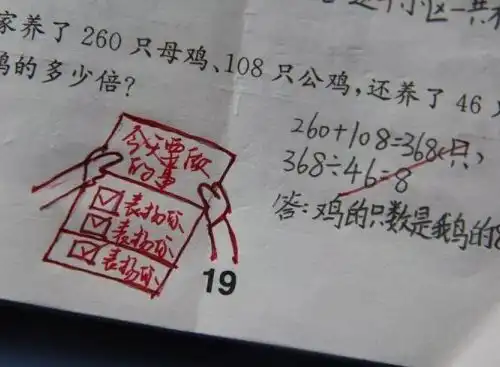 这个小区一共有
家养了 260 只母鸡、108 只公鸡，还养了 46
鸡的多少倍？
260+108=368(只)
368÷46=8
答：鸡的只数是鹅的8
今天要做
的事
表扬你
表扬你
表扬你
19